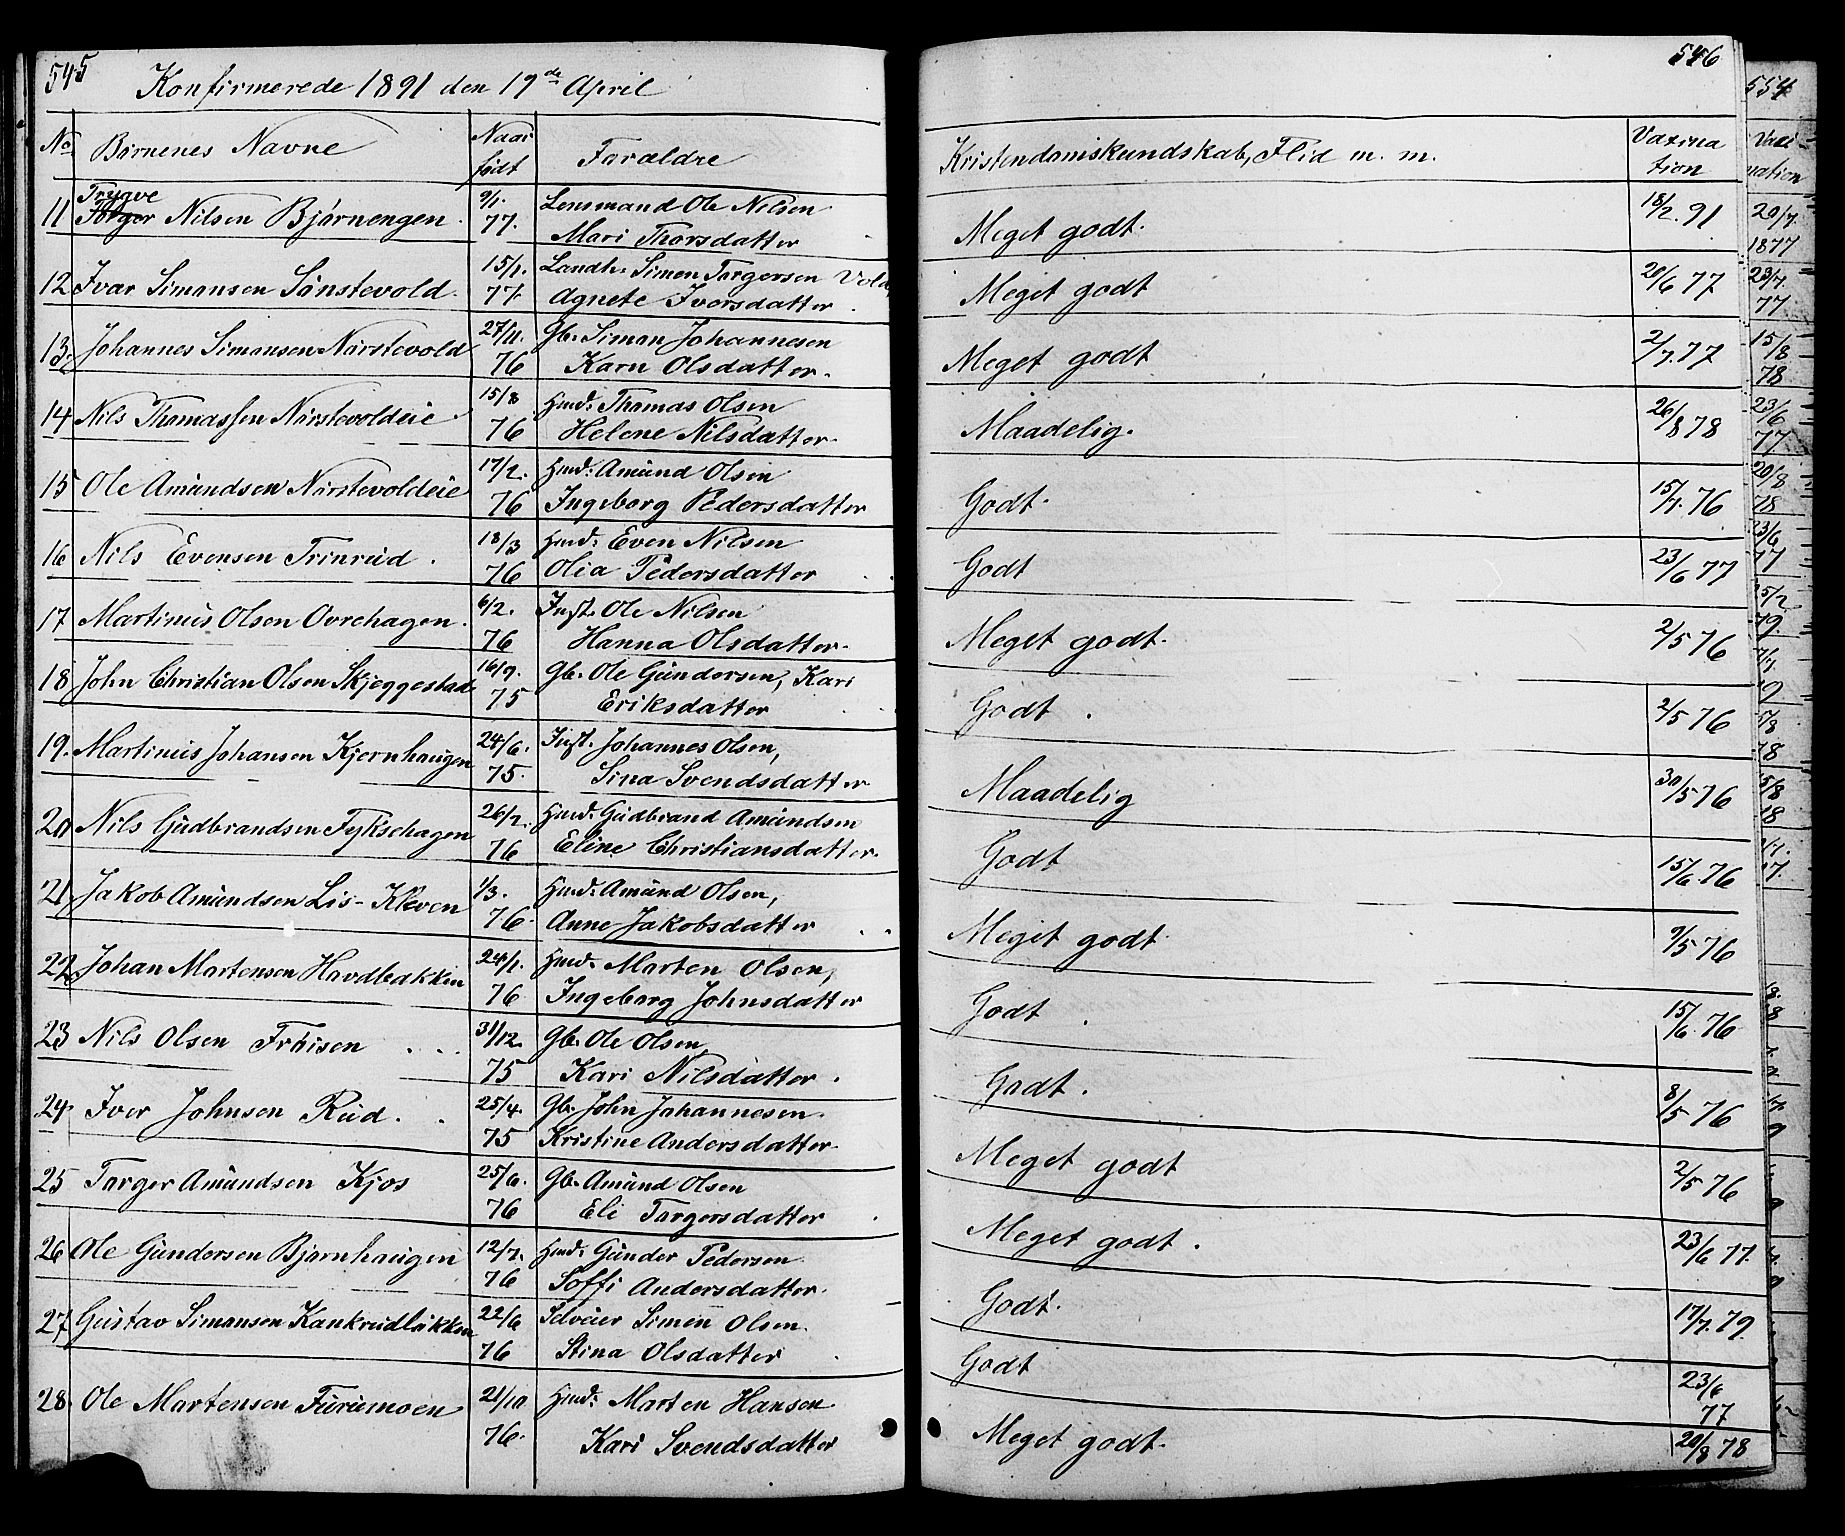 545
Konfirmerede 1891 den 19de April
No Børnenes Navne Naar født Forældre
11 Trygve Nilsen Bjørnengen. 9/1. 77. Lensmand Ole Nilsen
Mari Thorsdatter
12 Ivar Simensen Sønstevold. 15/1. 77. Landh: Simen Torgersen Vold,
Agnete Ivorsdatter.
13. Johannes Simonsen Nørstevold 27/11. 76 Gb. Simon Johannesen
Karn Olsdatter.
14 Nils Thomassen Nørstevoldeie 15/8 76 Hmd: Thomas Olsen
Helene Nilsdatter.
15 Ole Amundsen Nørstevoldeie 17/2. 76 Hmd: Amund Olsen
Ingeborg Pedersdatter
16 Nils Evensen Trinrud. 18/3 76 Hmd: Even Nilsen
Olia Pedersdatter
17 Martinus Olsen Ovrehagen. 6/2. 76 Inst. Ole Nilsen
Hanna Olsdatter.
18 John Christian Olsen Skjeggestad. 16/9. 75 Gb. Ole Gundersen, Kari
Eriksdatter
19. Martinus Johansen Kjernhaugen 24/6. 75. Inst. Johannes Olsen,
Sina Svendsdatter
20 Nils Gudbrandsen Tyksehagen 26/2. 76 Hmd: Gudbrand Amundsen
Eline Christiansdatter.
21 Jakob Amundsen Lis-Kleven 1/3. 76. Hmd: Amund Olsen,
Anne Jakobsdatter
22 Johan Martensen Hovdbakken 24/1. 76 Hmd. Marten Olsen,
Ingeborg Johnsdatter
23 Nils Olsen Frøisen 31/12. 75 Gb. Ole Olsen
Kari Nilsdatter.
24. Iver Johnsen Rud. 25/4. 75 Gb. John Johannesen.
Kristine Andersdatter.
25 Torger Amundsen Kjos 25/6. 76 Gb. Amund Olsen
Eli Torgersdatter
26 Ole Gundersen Bjørnhaugen 12/7. 76 Hmd: Gunder Pedersen
Soffi Andersdatter.
27 Gustav Simensen Kankrudløkken 22/6 76 Selveier Simen Olsen.
Stina Olsdatter
28. Ole Martensen Furumoen 21/10 76. Hmd: Marten Hansen.
Kari Svendsdatter
546
Kristendomskundskab, Flid m. m. Vaxina
tion
Meget godt. 18/2. 91
Meget godt 20/6 77
Meget godt 2/7. 77
Maadelig. 26/8 78
Godt. 15/7. 76
Godt 23/6 77
Meget godt. 2/5 76
Godt. 2/5 76
Maadelig 30/5 76
Godt 15/6 76
Meget godt 9/5 76
Godt. 15/6 76
Godt. 8/5 76
Meget godt 2/5 76
Meget godt. 23/6 77.
Godt. 17/7. 79.
Godt 23/6 77
Meget godt. 20/8 78
554
Vaxi-
nation
20/7.
1877
23/7.
77
15/8
78
23/6
77
20/8
78
23/6
77